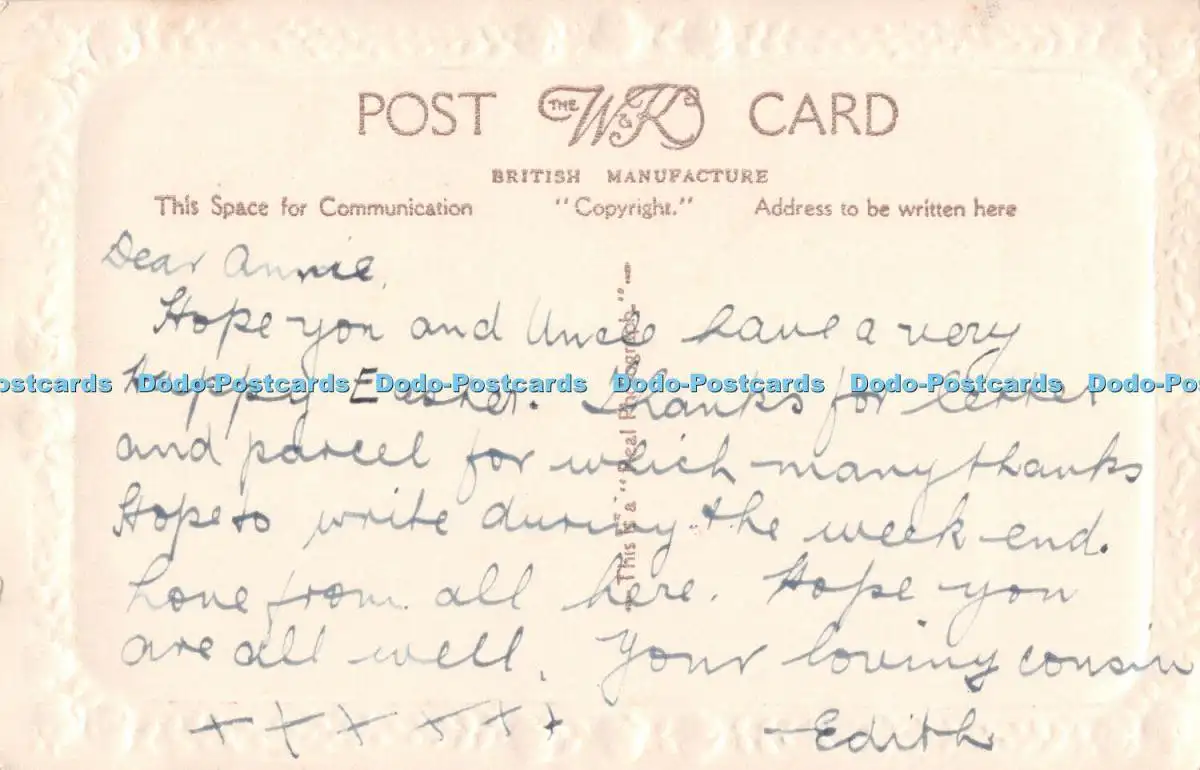 POST THE W & K CARD
BRITISH MANUFACTURE
This Space for Communication "Copyright." Address to be written here
Dear Annie,
Hope you and Uncle have a very
happy Easter. Thanks for letter
ostcards Dodo-Postcards Dodo-Postcards Dodo-Postcards Dodo-Postcards Dodo-Po
and parcel for which many thanks
Hope to write during the week-end.
Love from all here. Hope you
are all well. Your loving cousin
x x x x x x
- Edith
This is a "Real Photograph"